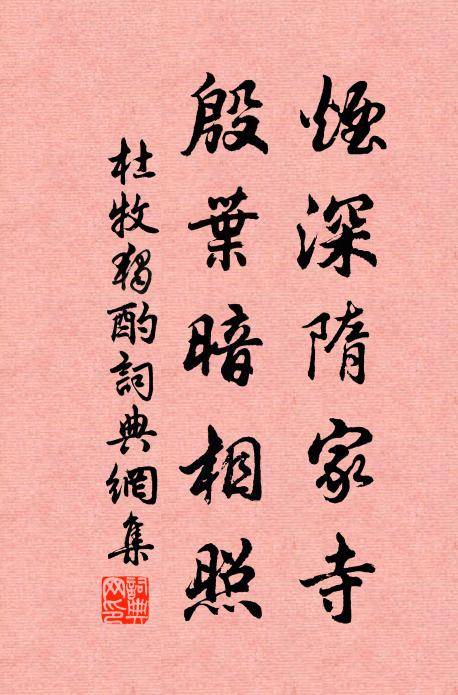 煙深隋家寺
殷葉暗相照
杜牧獨酌詞典網集
詞典網印